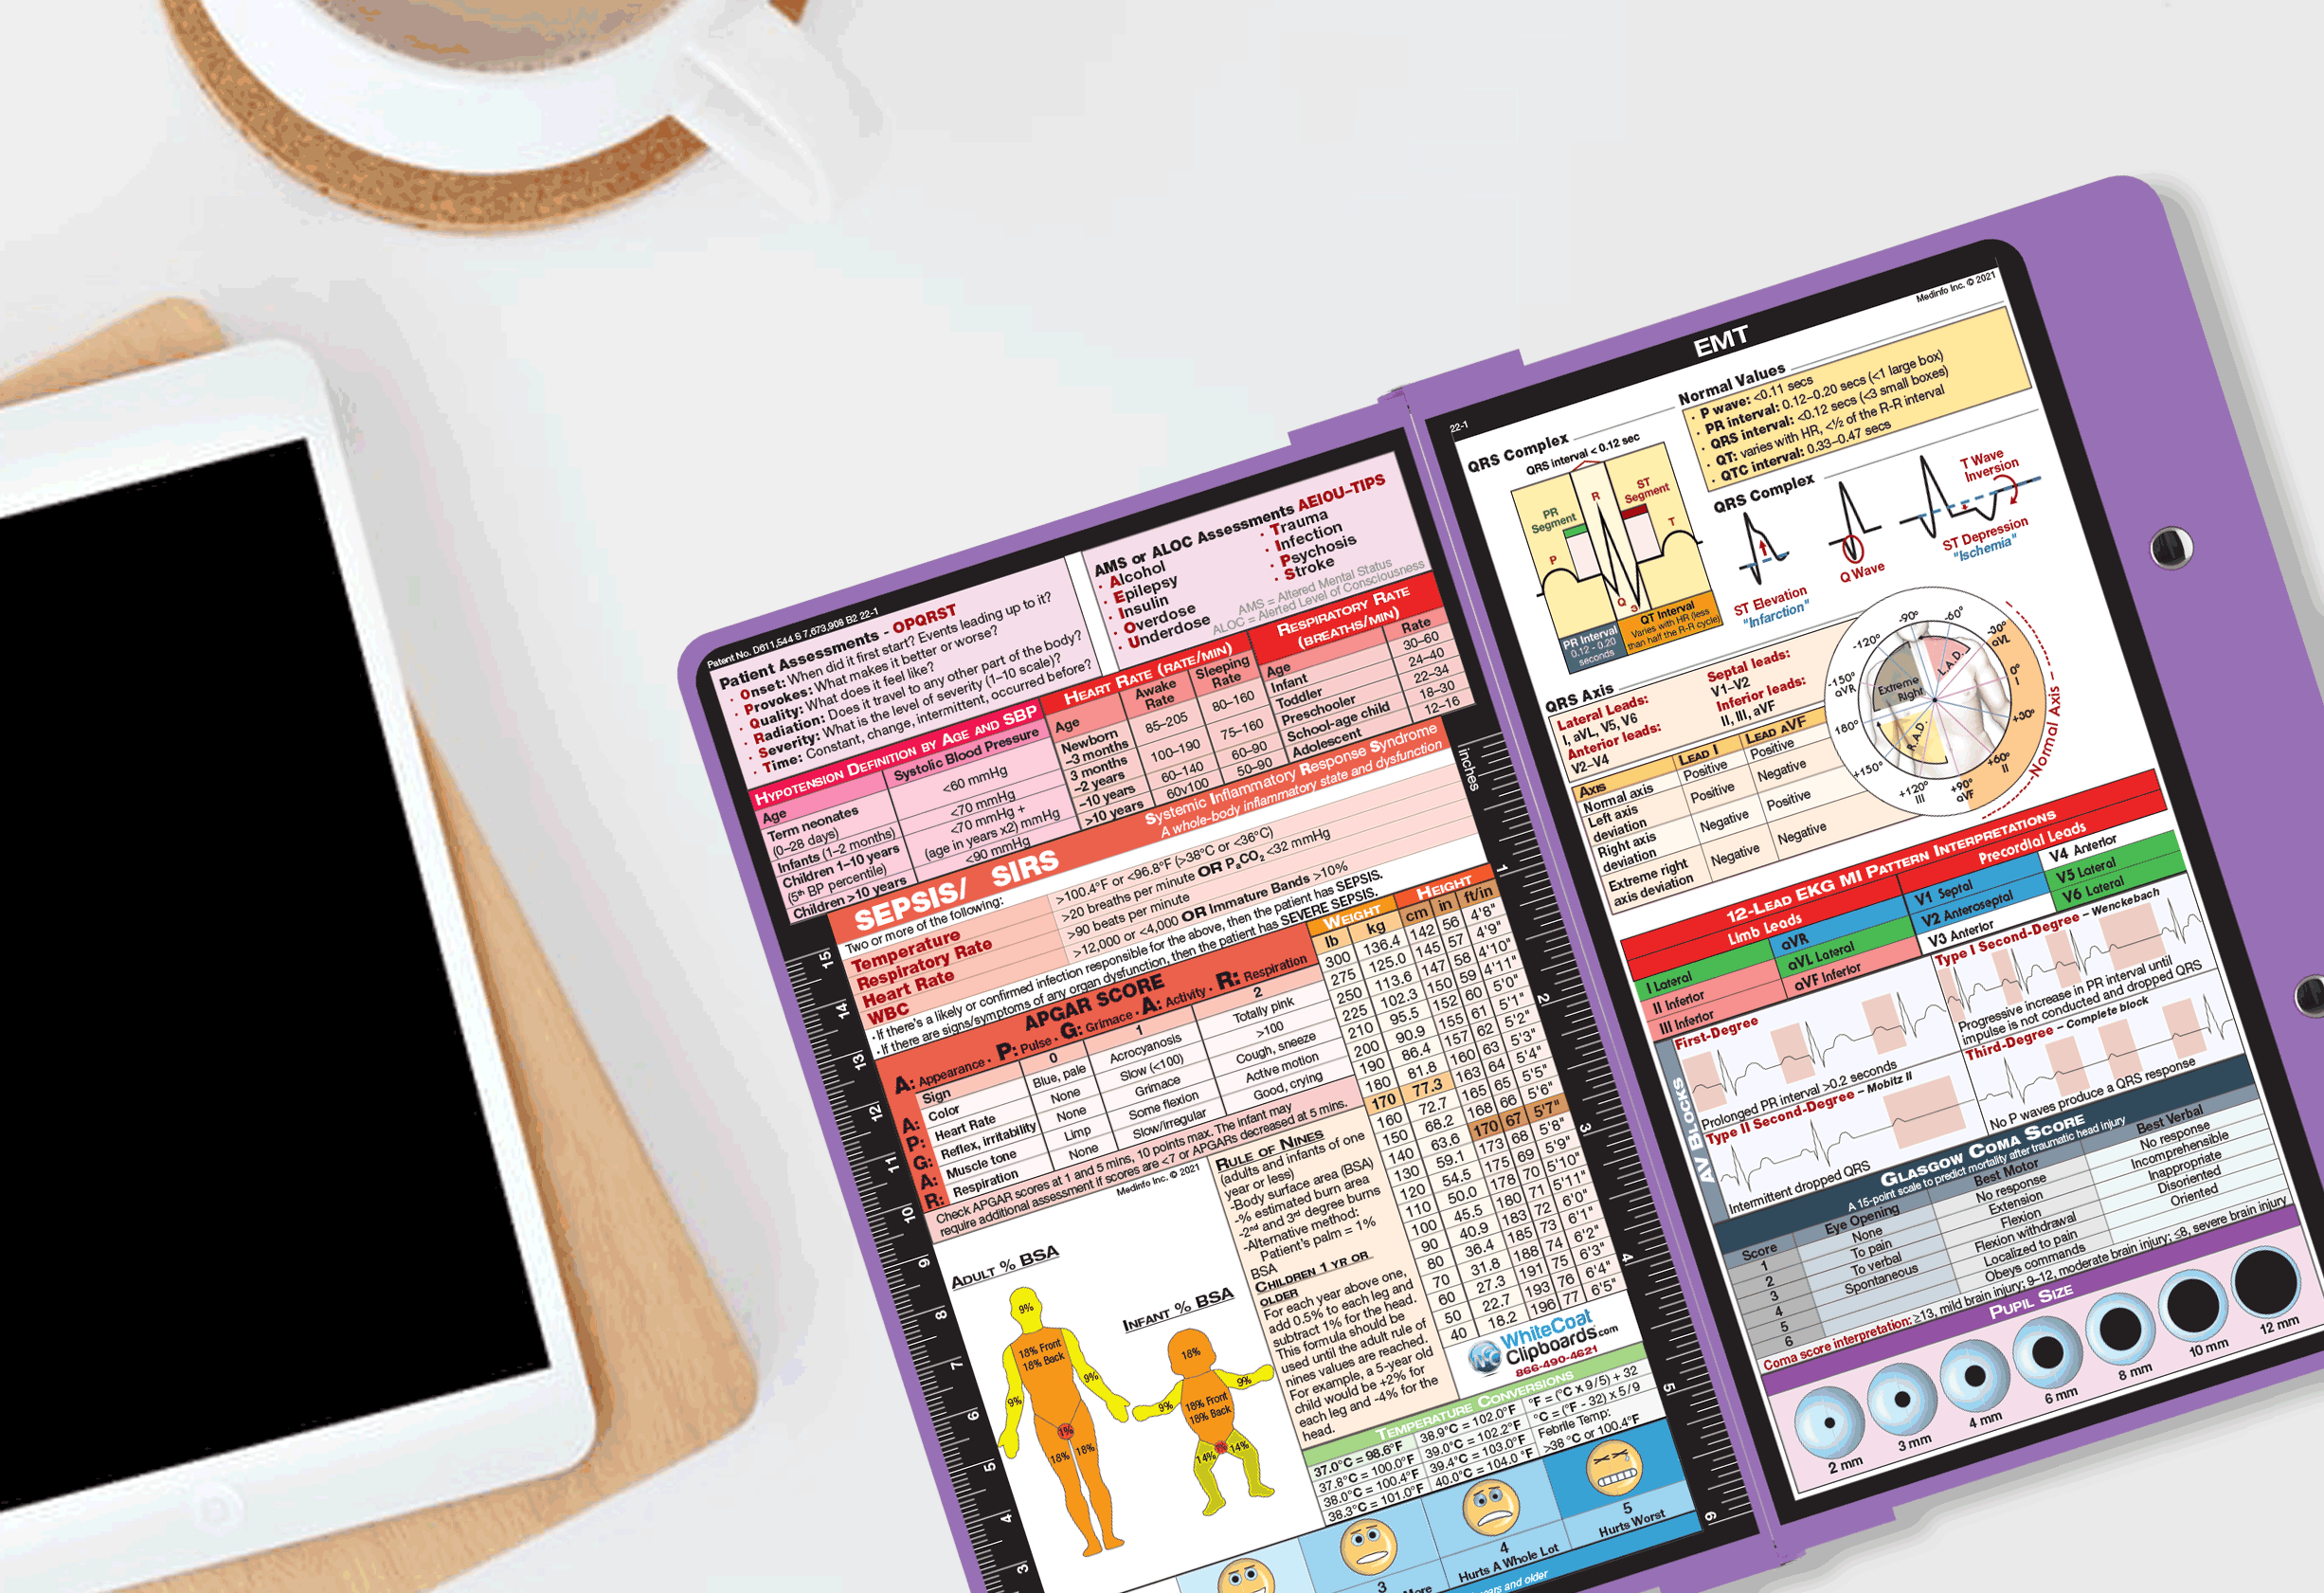 Patent No. D611,544 S 7,673,908 B2 22-1
Patient Assessments - OPQRST
· Onset: When did it first start? Events leading up to it?
· Provokes: What makes it better or worse?
· Quality: What does it feel like?
· Radiation: Does it travel to any other part of the body?
· Severity: What is the level of severity (1–10 scale)?
· Time: Constant, change, intermittent, occurred before?
AMS or ALOC Assessments AEIOU–TIPS
· Alcohol
· Epilepsy
· Insulin
· Overdose
· Underdose
· Trauma
· Infection
· Psychosis
· Stroke
AMS = Altered Mental Status
ALOC = Alerted Level of Consciousness
Hypotension Definition by Age and SBP
Age Systolic Blood Pressure
Term neonates
(0–28 days) <60 mmHg
Infants (1–2 months) <70 mmHg
Children 1–10 years <70 mmHg +
(5th BP percentile) (age in years x2) mmHg
Children >10 years <90 mmHg
Heart Rate (rate/min)
Age Awake Rate Sleeping Rate
Newborn
–3 months 85–205 80–160
3 months
–2 years 100–190 75–160
–10 years 60–140 60–90
>10 years 60v100 50–90
Respiratory Rate
(breaths/min)
Age Rate
Infant 30–60
Toddler 24–40
Preschooler 22–34
School-age child 18–30
Adolescent 12–16
SEPSIS/ SIRS
Systemic Inflammatory Response Syndrome
A whole-body inflammatory state and dysfunction
Two or more of the following:
Temperature >100.4°F or <96.8°F (>38°C or <36°C)
Respiratory Rate >20 breaths per minute OR PaCO2 <32 mmHg
Heart Rate >90 beats per minute
WBC >12,000 or <4,000 OR Immature Bands >10%
·If there's a likely or confirmed infection responsible for the above, then the patient has SEPSIS.
·If there are signs/symptoms of any organ dysfunction, then the patient has SEVERE SEPSIS.
APGAR SCORE
A: Appearance · P: Pulse · G: Grimace · A: Activity · R: Respiration
Sign 0 1 2
A: Color Blue, pale Acrocyanosis Totally pink
P: Heart Rate None Slow (<100) >100
G: Reflex, irritability None Grimace Cough, sneeze
A: Muscle tone Limp Some flexion Active motion
R: Respiration None Slow/irregular Good, crying
Check APGAR scores at 1 and 5 mins, 10 points max. The infant may
require additional assessment if scores are <7 or APGARs decreased at 5 mins.
Medinfo Inc. © 2021
Weight
lb kg
300 136.4
275 125.0
250 113.6
225 102.3
210 95.5
200 90.9
190 86.4
180 81.8
170 77.3
160 72.7
150 68.2
140 63.6
130 59.1
120 54.5
110 50.0
100 45.5
90 40.9
80 36.4
70 31.8
60 27.3
50 22.7
40 18.2
Height
cm in ft/in
142 56 4'8"
145 57 4'9"
147 58 4'10"
150 59 4'11"
152 60 5'0"
155 61 5'1"
157 62 5'2"
160 63 5'3"
163 64 5'4"
165 65 5'5"
168 66 5'6"
170 67 5'7"
173 68 5'8"
175 69 5'9"
178 70 5'10"
180 71 5'11"
183 72 6'0"
185 73 6'1"
188 74 6'2"
191 75 6'3"
193 76 6'4"
196 77 6'5"
Adult % BSA
9%
18% Front
18% Back
9%
9%
1%
18% 18%
Infant % BSA
18%
9%
18% Front
18% Back
9%
1%
14% 14%
Rule of Nines
(adults and infants of one
year or less)
-Body surface area (BSA)
-% estimated burn area
-2nd and 3rd degree burns
-Alternative method:
Patient's palm = 1%
BSA
Children 1 yr or
older
For each year above one,
add 0.5% to each leg and
subtract 1% for the head.
This formula should be
used until the adult rule of
nines values are reached.
For example, a 5-year old
child would be +2% for
each leg and -4% for the
head.
WC
WhiteCoat
Clipboards.com
866-490-4621
Temperature Conversions
37.0°C = 98.6°F 38.9°C = 102.0°F °F = (°C x 9/5) + 32
37.8°C = 100.0°F 39.0°C = 102.2°F °C = (°F - 32) x 5/9
38.0°C = 100.4°F 39.4°C = 103.0°F Febrile Temp:
38.3°C = 101.0°F 40.0°C = 104.0 °F >38 °C or 100.4°F
3
More
4
Hurts A Whole Lot
5
Hurts Worst
years and older
15
14
13
12
11
10
9
8
7
6
5
4
3
inches
1
2
3
4
5
6
22-1
EMT
Medinfo Inc. © 2021
QRS Complex
QRS interval < 0.12 sec
PR
Segment
R
ST
Segment
P
T
Q
S
PR Interval
0.12 - 0.20
seconds
QT Interval
Varies with HR (less
than half the R-R cycle)
Normal Values
· P wave: <0.11 secs
· PR interval: 0.12–0.20 secs (<1 large box)
· QRS interval: <0.12 secs (<3 small boxes)
· QT: varies with HR, <½ of the R-R interval
· QTC interval: 0.33–0.47 secs
QRS Complex
ST Elevation
"Infarction"
Q Wave
T Wave
Inversion
ST Depression
"Ischemia"
QRS Axis
Lateral Leads:
I, aVL, V5, V6
Anterior leads:
V2–V4
Septal leads:
V1–V2
Inferior leads:
II, III, aVF
Axis Lead I Lead aVF
Normal axis Positive Positive
Left axis
deviation Positive Negative
Right axis
deviation Negative Positive
Extreme right
axis deviation Negative Negative
-90°
-60°
-30°
aVL
0°
I
+30°
+60°
II
+90°
aVF
+120°
III
+150°
180°
-150°
aVR
-120°
Extreme
Right
L.A.D.
R.A.D.
Normal Axis
12-Lead EKG MI Pattern Interpretations
Limb Leads Precordial Leads
I Lateral aVR V1 Septal V4 Anterior
II Inferior aVL Lateral V2 Anteroseptal V5 Lateral
III Inferior aVF Inferior V3 Anterior V6 Lateral
AV Blocks
First-Degree
Prolonged PR interval >0.2 seconds
Type I Second-Degree – Wenckebach
Progressive increase in PR interval until
impulse is not conducted and dropped QRS
Type II Second-Degree – Mobitz II
Intermittent dropped QRS
Third-Degree – Complete block
No P waves produce a QRS response
Glasgow Coma Score
A 15-point scale to predict mortality after traumatic head injury
Score Eye Opening Best Motor Best Verbal
1 None No response No response
2 To pain Extension Incomprehensible
3 To verbal Flexion Inappropriate
4 Spontaneous Flexion withdrawal Disoriented
5 Localized to pain Oriented
6 Obeys commands
Coma score interpretation: ≥13, mild brain injury; 9–12, moderate brain injury; ≤8, severe brain injury
Pupil Size
2 mm
3 mm
4 mm
6 mm
8 mm
10 mm
12 mm